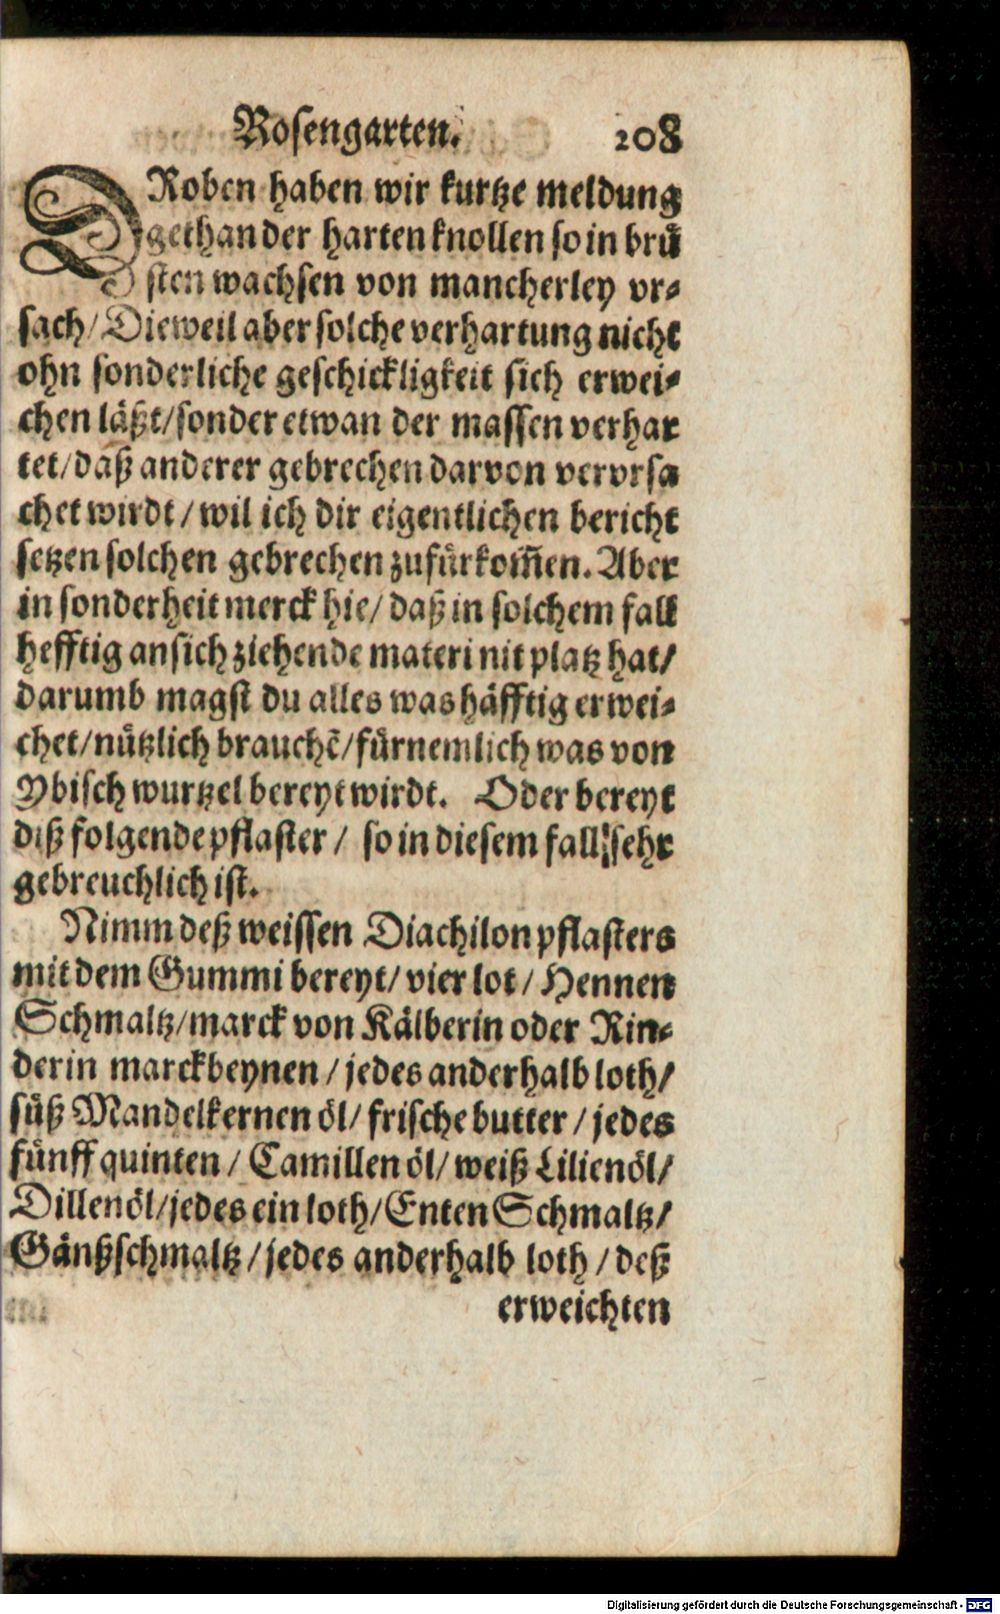 Rosengarten. 208
DRoben haben wir kurtze meldung
gethan der harten knollen so in brü
sten wachsen von mancherley vr⸗
sach/ Dieweil aber solche verhartung nicht
ohn sonderliche geschickligkeit sich erwei⸗
chen läßt/sonder etwan der massen verhar
tet/daß anderer gebrechen darvon vervrsa
chet wirdt/wil ich dir eigentlichen bericht
setzen solchen gebrechen zufürkom̃en. Aber
in sonderheit merck hie/daß in solchem fall
hefftig ansich ziehende materi nit platz hat/
darumb magst du alles was häfftig erwei⸗
chet/nützlich brauchẽ/fürnemlich was von
Ybisch wurtzel bereyt wirdt. Oder bereyt
diß folgende pflaster/ so in diesem fall sehr
gebreuchlich ist.
Nimm deß weissen Diachilon pflasters
mit dem Gummi bereyt/vier lot/Hennen
Schmaltz/marck von Kälberin oder Rin⸗
derin marckbeynen/jedes anderhalb loth/
süß Mandelkernen öl/frische butter/jedes
fünff quinten/Camillen öl/weiß Lilienöl/
Dillenöl/jedes ein loth/Enten Schmaltz/
Gänßschmaltz/jedes anderhalb loth/deß
erweichten
Digitalisierung gefördert durch die Deutsche Forschungsgemeinschaft - DFG